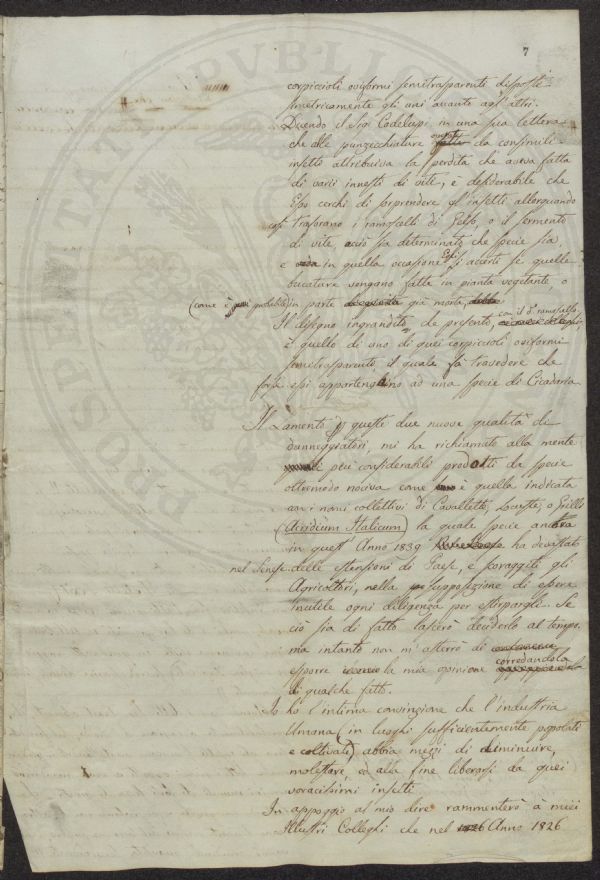 7
PROSPERITATI PUBLI
corpiccioli oviformi semitrasparenti disposti
simetricamente gli uni avanti agl'altri.
Dicendo il Sigr Cadelupi in una sua lettera
che alle punzecchiature da consimili
insetti attribuiva la perdita che aveva fatta
di varii innesti di vite, è desiderabile che
Esso cerchi di sorprendere gl'insetti allorquando
così traforano i ramoscelli di Gelso, o il sermento
di vite, acciò sia determinato che specie sia,
e in quella occasione Egli si accerti se quelle
bucature vengono fatte in pianta vegetante, o
(come è più probabile) in parte già morta,
Il disegno ingrandito che presento, con il S. ramoscello,
è quello di uno di quei corpiccioli oviformi
semitrasparenti, il quale fa travedere che
forse essi appartengano ad una specie di Cicadaria.
Il Lamento di queste due nuove qualità di
danneggiatori, mi ha richiamato alla mente
più considerabili prodotti da specie
oltremodo nociva come è quella indicata
con i nomi collettivi di Cavallette, Locuste, o Grilli
(Acridium Italicum) la quale specie ancora
in quest'Anno 1839 ha devastato
nel Senese delle estensioni di Paese, e scoraggiti gli
Agricoltori, nella supposizione di essere
inutile ogni diligenza per estirpargli. Se
ciò sia di fatto lascerò deciderlo al tempo,
ma intanto non m'asterrò di
esporre la mia opinione corredandola
di qualche fatto.
Io ho l'intima convinzione che l'industria
Umana (in luoghi sufficientemente popolati
e coltivati) abbia mezzi di diminuire,
molestare, ed alla fine liberarsi da quei
voracissimi insetti
In appoggio al mio dire rammenterò a miei
Illustri Colleghi che nel 1826 Anno 1826